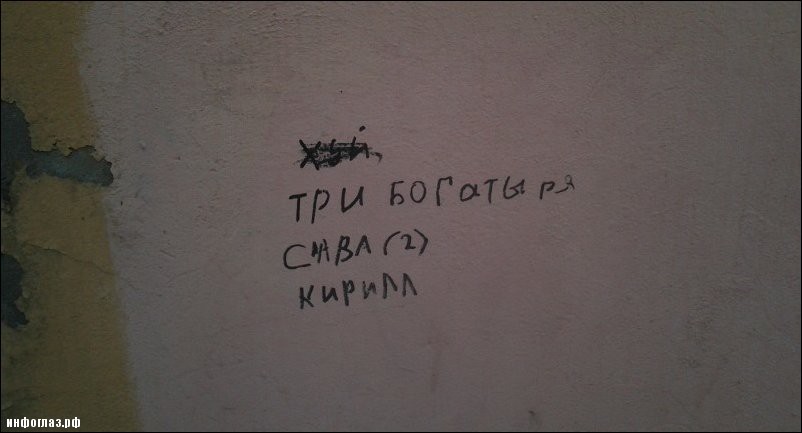 хуй
ТРИ БОГАТЫРЯ
САВА (2)
КИРИЛЛ
инфоглаз.рф